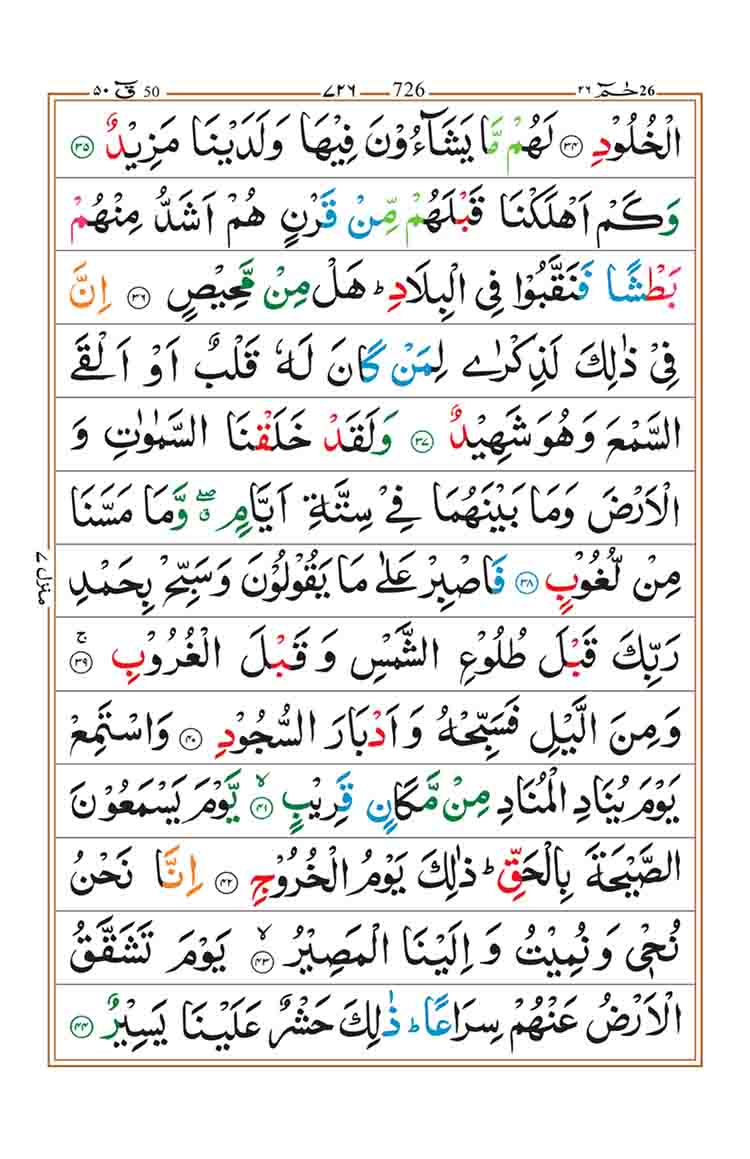 حٰمٓ ٢٦ 26 ٧٢٦ 726 قٓ ٥٠ 50
الْخُلُوْدِ ٣٤ لَهُمْ مَّا يَشَآءُوْنَ فِيْهَا وَلَدَيْنَا مَزِيْدٌ ٣٥
وَكَمْ اَهْلَكْنَا قَبْلَهُمْ مِّنْ قَرْنٍ هُمْ اَشَدُّ مِنْهُمْ
بَطْشًا فَنَقَّبُوْا فِي الْبِلَادِ ؕ هَلْ مِنْ مَّحِيْصٍ ٣٦ اِنَّ
فِيْ ذٰلِكَ لَذِكْرٰى لِمَنْ كَانَ لَهٗ قَلْبٌ اَوْ اَلْقَى
السَّمْعَ وَهُوَ شَهِيْدٌ ٣٧ وَلَقَدْ خَلَقْنَا السَّمٰوٰتِ وَ
الْاَرْضَ وَمَا بَيْنَهُمَا فِيْ سِتَّةِ اَيَّامٍ ۖق وَّمَا مَسَّنَا
مِنْ لُّغُوْبٍ ٣٨ فَاصْبِرْ عَلٰى مَا يَقُوْلُوْنَ وَسَبِّحْ بِحَمْدِ
رَبِّكَ قَبْلَ طُلُوْعِ الشَّمْسِ وَقَبْلَ الْغُرُوْبِ ۚ ٣٩
وَمِنَ الَّيْلِ فَسَبِّحْهُ وَاَدْبَارَ السُّجُوْدِ ٤٠ وَاسْتَمِعْ
يَوْمَ يُنَادِ الْمُنَادِ مِنْ مَّكَانٍ قَرِيْبٍ ۙ ٤١ يَّوْمَ يَسْمَعُوْنَ
الصَّيْحَةَ بِالْحَقِّ ؕ ذٰلِكَ يَوْمُ الْخُرُوْجِ ٤٢ اِنَّا نَحْنُ
نُحْيٖ وَنُمِيْتُ وَاِلَيْنَا الْمَصِيْرُ ۙ ٤٣ يَوْمَ تَشَقَّقُ
الْاَرْضُ عَنْهُمْ سِرَاعًا ؕ ذٰلِكَ حَشْرٌ عَلَيْنَا يَسِيْرٌ ٤٤
منزل ٧